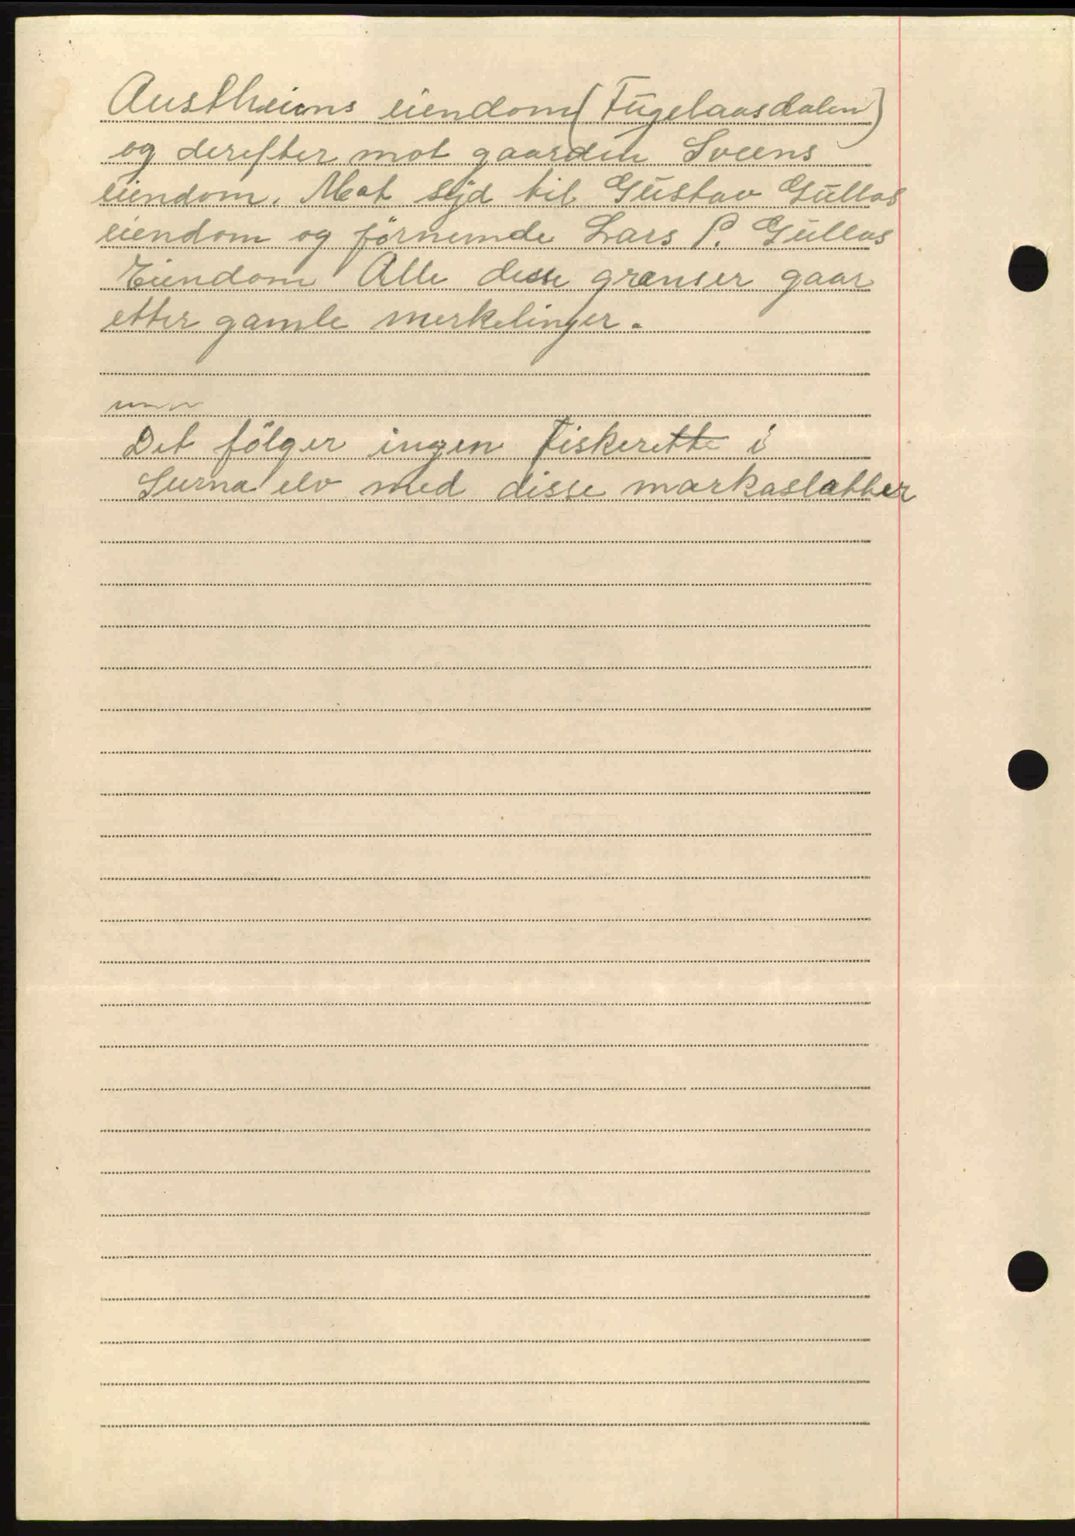 Austheims eiendom (Fŭgelaasdalen)
og derefter mot gaarden Sveens
eiendom. Mot syd til Gŭstav Gŭllas
eiendom og førnemde Lars P. Gŭllas
Eiendom Alle disse grænser gaar
etter gamle merkelinjer.
Det følger ingen Fiskerette i
Surna elv med disse markaslatter